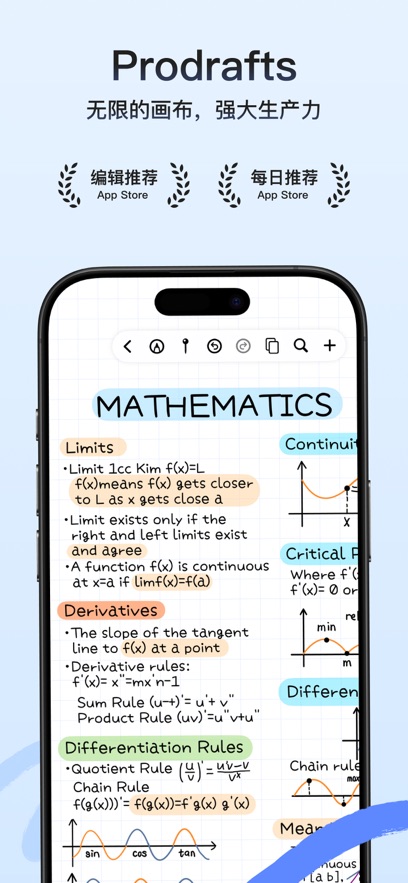 Prodrafts
无限的画布，强大生产力
编辑推荐
App Store
每日推荐
App Store
MATHEMATICS
Limits
•Limit 1cc Kim f(x)=L
f(x)means f(x) gets closer
to L as x gets close a
•Limit exists only if the
right and left limits exist
and agree
•A function f(x) is continuous
at x=a if limf(x)=f(a)
Derivatives
•The slope of the tangent
line to f(x) at a point
•Derivative rules:
f'(x)= x''=mx'n-1
Sum Rule (u-+)'= u'+ v''
Product Rule (uv)'=u''v+u''
Differentiation Rules
•Quotient Rule (u/v)'=u'v-v''/v^x
Chain Rule
f(g(x)))'= f(g(x))=f'g(x) g'(x)
sin cos tan
Continuit
x
Critical P
Where f'(
f'(x)= 0 or
rel
min
m
Differen
Chain rule
max
Mean
nuous
[a b],